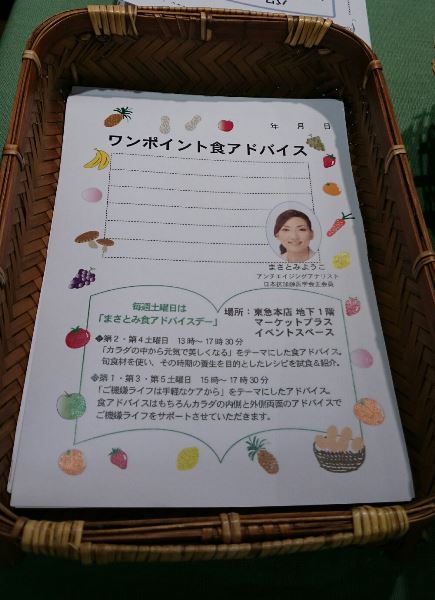 年 月 日
ワンポイント食アドバイス
まさとみようこ
アンチエイジングアナリスト
毎週土曜日は
「まさとみ食アドバイスデー」
場所:東急本店 地下1階
マーケットプラス
イベントスペース
◆第2・第4土曜日 13時〜17時30分
「カラダの中から元気で美しくなる」をテーマにした食アドバイス。
旬食材を使い、その時期の養生を目的としたレシピを試食&紹介。
◆第1・第3・第5土曜日 15時〜17時30分
「ご機嫌ライフは手軽なケアから」をテーマにしたアドバイス。
食アドバイスはもちろんカラダの内側と外側両面のアドバイスで
ご機嫌ライフをサポートさせていただきます。